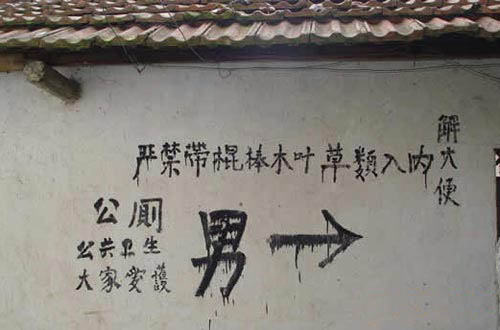 严禁带棍棒木叶草类入内
解大便
公厕
公共卫生
大家爱護
男